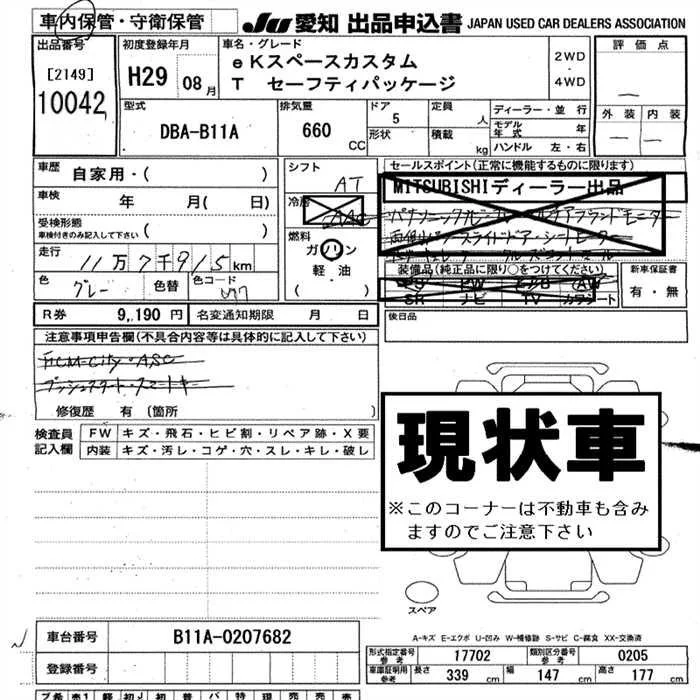 車内保管・守衛保管
JU 愛知 出品申込書 JAPAN USED CAR DEALERS ASSOCIATION
出品番号
[2149]
10042
初度登録年月
H29 08月
車名・グレード
eKスペースカスタム
T セーフティパッケージ
2WD
・
4WD
評価点
外装 内装
型式
DBA-B11A
排気量
660
CC
ドア
5
形状
定員
人
積載
kg
ディーラー・並行
モデル年式 年
ハンドル 左・右
車歴
自家用・( )
車検 年 月( 日)
受検形態
車検付きのみ記入して下さい ( )
走行
11万7千915km
色
グレー
色替
色コード
シフト
AT
冷房
AAC
燃料
ガソリン
軽油
( )
セールスポイント(正常に機能するものに限ります)
MITSUBISHIディーラー出品
装備品(純正品に限り○をつけてください)
PS PW エアB AW
SR ナビ TV カワシート
新車保証書
有・無
R券 9,190 円 名変通知期限 月 日
後日品
注意事項申告欄(不具合内容等は具体的に記入して下さい)
FCM-City・ASC
プッシュスタート・スマートキー
修復歴 有 (箇所 )
検査員
記入欄
FW キズ・飛石・ヒビ割・リペア跡・X要
内装 キズ・汚レ・コゲ・穴・スレ・キレ・破レ
現状車
※このコーナーは不動車も含み
ますのでご注意下さい
スペア
A-キズ E-エクボ U-凹み W-補修跡 S-サビ C-腐食 XX-交換済
車台番号 B11A-0207682
登録番号
形式指定番号 参考 17702 類別区分番号 参考 0205
車庫証明用 参考 長さ 339 cm 幅 147 cm 高さ 177 cm